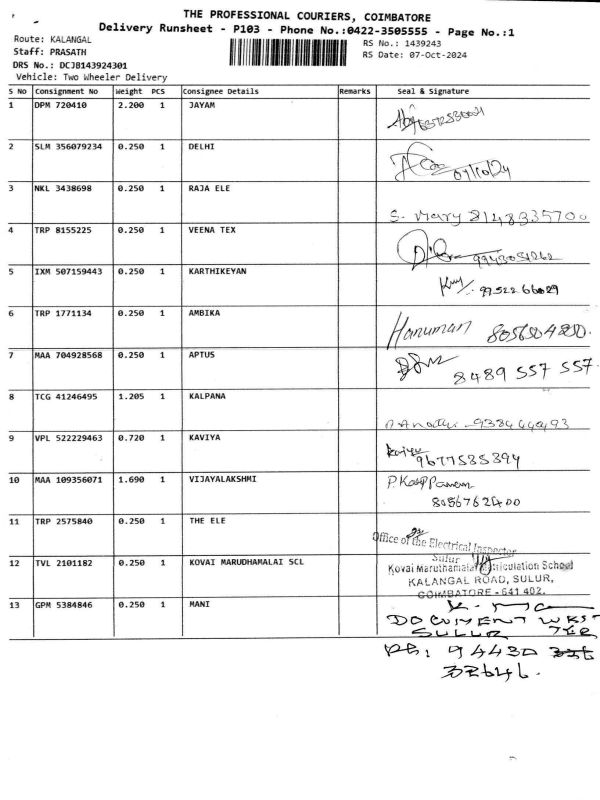 THE PROFESSIONAL COURIERS, COIMBATORE
Delivery Runsheet - P103 - Phone No.:0422-3505555 - Page No.:1
Route: KALANGAL
RS No.: 1439243
Staff: PRASATH
RS Date: 07-Oct-2024
DRS No.: DCJB143924301
Vehicle: Two Wheeler Delivery
S No Consignment No Weight PCS Consignee Details Remarks Seal & Signature
1 DPM 720410 2.200 1 JAYAM
2 SLM 356079234 0.250 1 DELHI 07/10/24
3 NKL 3438698 0.250 1 RAJA ELE S. Mary 8148335700
4 TRP 8155225 0.250 1 VEENA TEX 9943051262
5 IXM 507159443 0.250 1 KARTHIKEYAN 97522 66029
6 TRP 1771134 0.250 1 AMBIKA Hanuman 8056804200.
7 MAA 704928568 0.250 1 APTUS 8489 557 557.
8 TCG 41246495 1.205 1 KALPANA
9 VPL 522229463 0.720 1 KAVIYA 9677535394
10 MAA 109356071 1.690 1 VIJAYALAKSHMI
8056762400
11 TRP 2575840 0.250 1 THE ELE
Office of the Electrical Inspector
Sulur
12 TVL 2101182 0.250 1 KOVAI MARUDHAMALAI SCL
Kovai Maruthamalai Matriculation School
KALANGAL ROAD, SULUR,
COIMBATORE - 641 402.
13 GPM 5384846 0.250 1 MANI
DOCUMENT
SULUR
PH: 94430
32646.